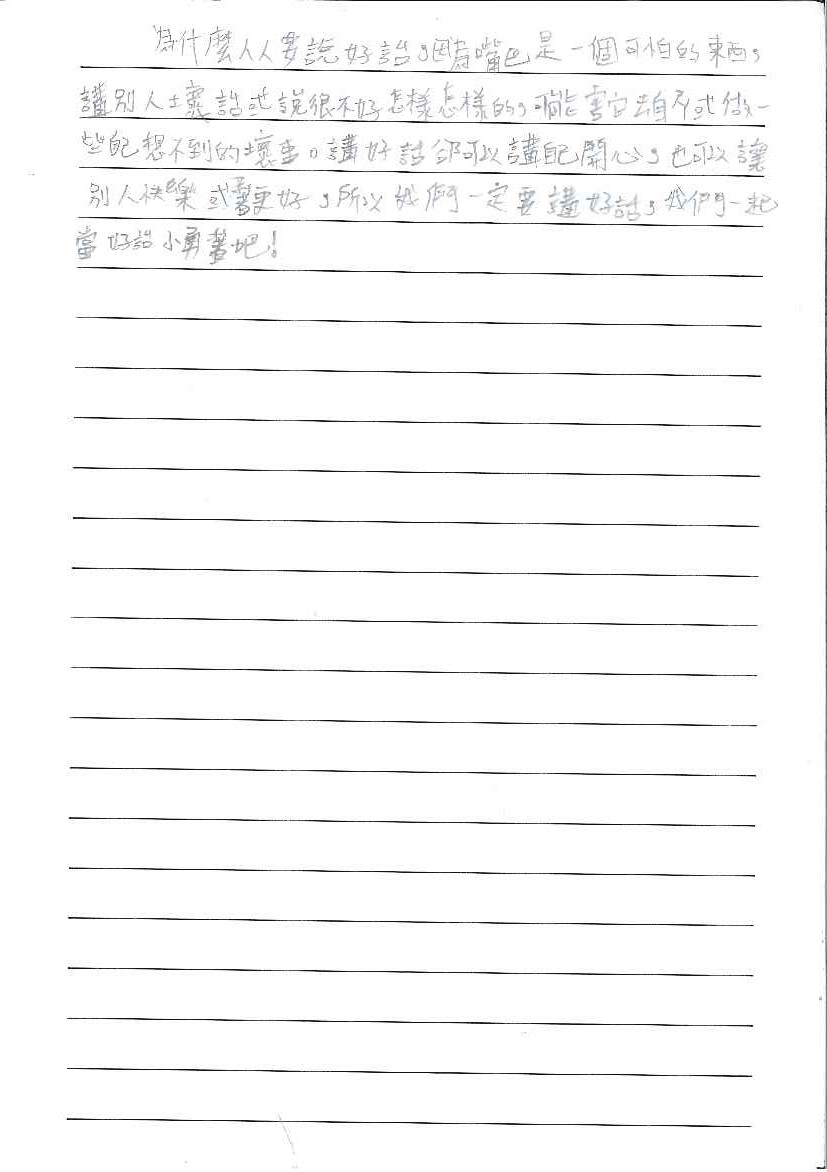 為什麼人人要說好話,因為嘴巴是一個可怕的東西,
講別人壞話或說很不好怎樣怎樣的,可能害它去自殺或做一
些自己想不到的壞事。講好話卻可以讓自己開心,也可以讓
別人快樂或更好,所以我們一定要講好話,我們一起
當好話小勇者吧!